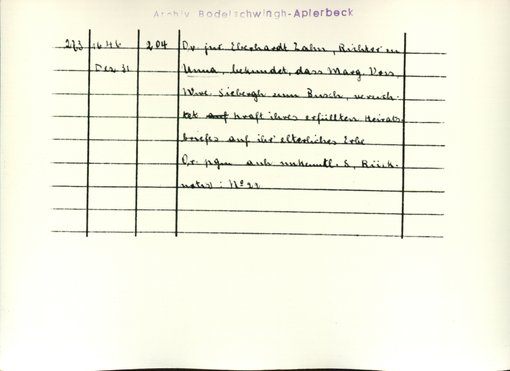 Archiv Bodelschwingh-Aplerbeck
273 1646 204 Dr. jur Eberhardt Zahn, Richter in
Dez 31 Unna, bekundet, dass Marg. Voss,
Wwe. Siebergh zum Busch, verzich-
tet auf kraft ihres erfüllten Heirats
briefes auf ihr elterliches Erbe
Or. pgm anh S, Rück-
notiz: No 22